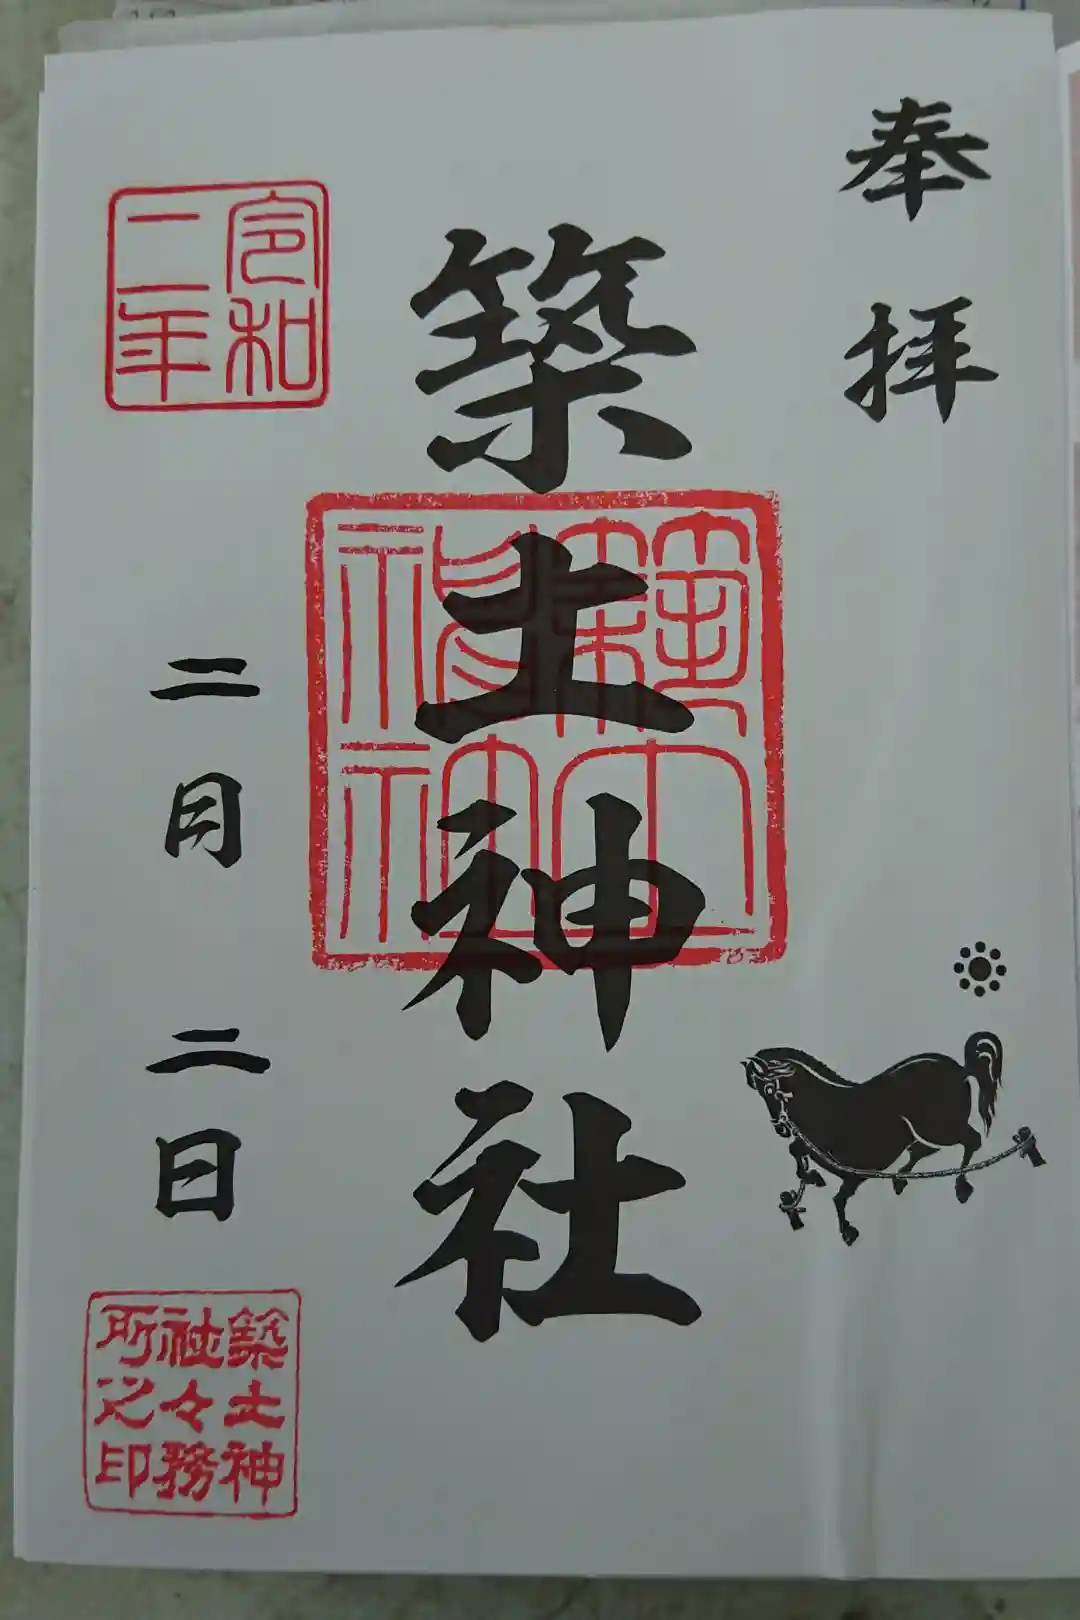 奉拝
築土神社
築土神社
令和二年
二月二日
築土神社々務所之印